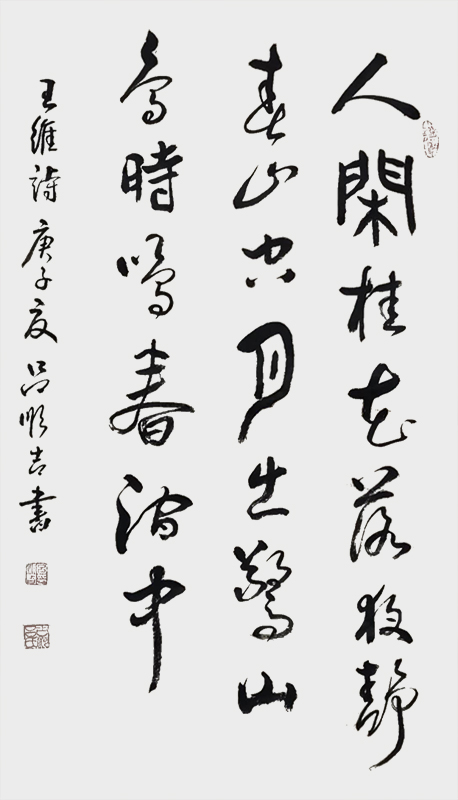 人閑桂花落夜靜
春山空月出驚山
鳥時鳴春澗中
王維詩庚子夏吕順吉書